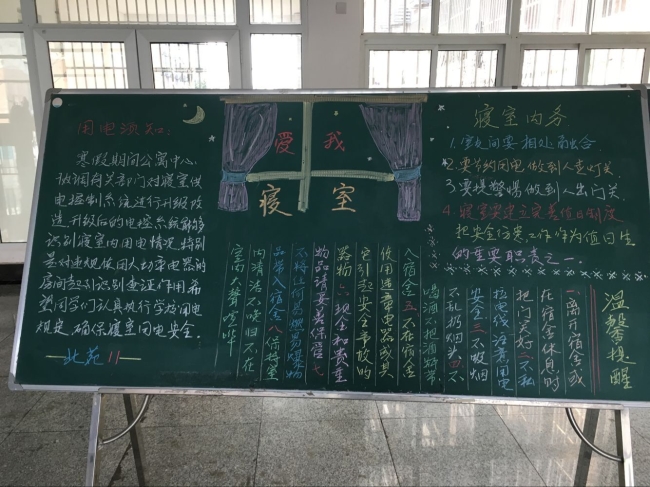 用电须知:
寒假期间公寓中心
协调有关部门对寝室供
电控制系统进行升级改
造,升级后的电控系统能够
识别寝室内用电情况,特别
是对违规使用大功率电器的
房间起到识别查证作用希
望同学们认真执行学校用电
规定,确保寝室用电安全.
北苑11
爱我
寝室
寝室内务
1.室友间要相处融合.
2.要节约用电做到人走灯关.
3.要提警惕做到人出门关.
4.寝室要建立完善值日制度
把安全防范工作作为值日生
的重要职责之一.
温馨提醒
一离开宿舍或
在宿舍休息时
把门关好二不私
拉电线注意用电
安全三不吸烟
不乱扔烟头四不
喝酒不把酒精带
入宿舍五不在宿舍
使用违章电器或其
它引起安全事故的
器物六现金和贵重
物品请妥善保管七
不将任何易燃易爆物
品带入宿舍八保持室
内清洁不喧哗不在
室内大声喧哗